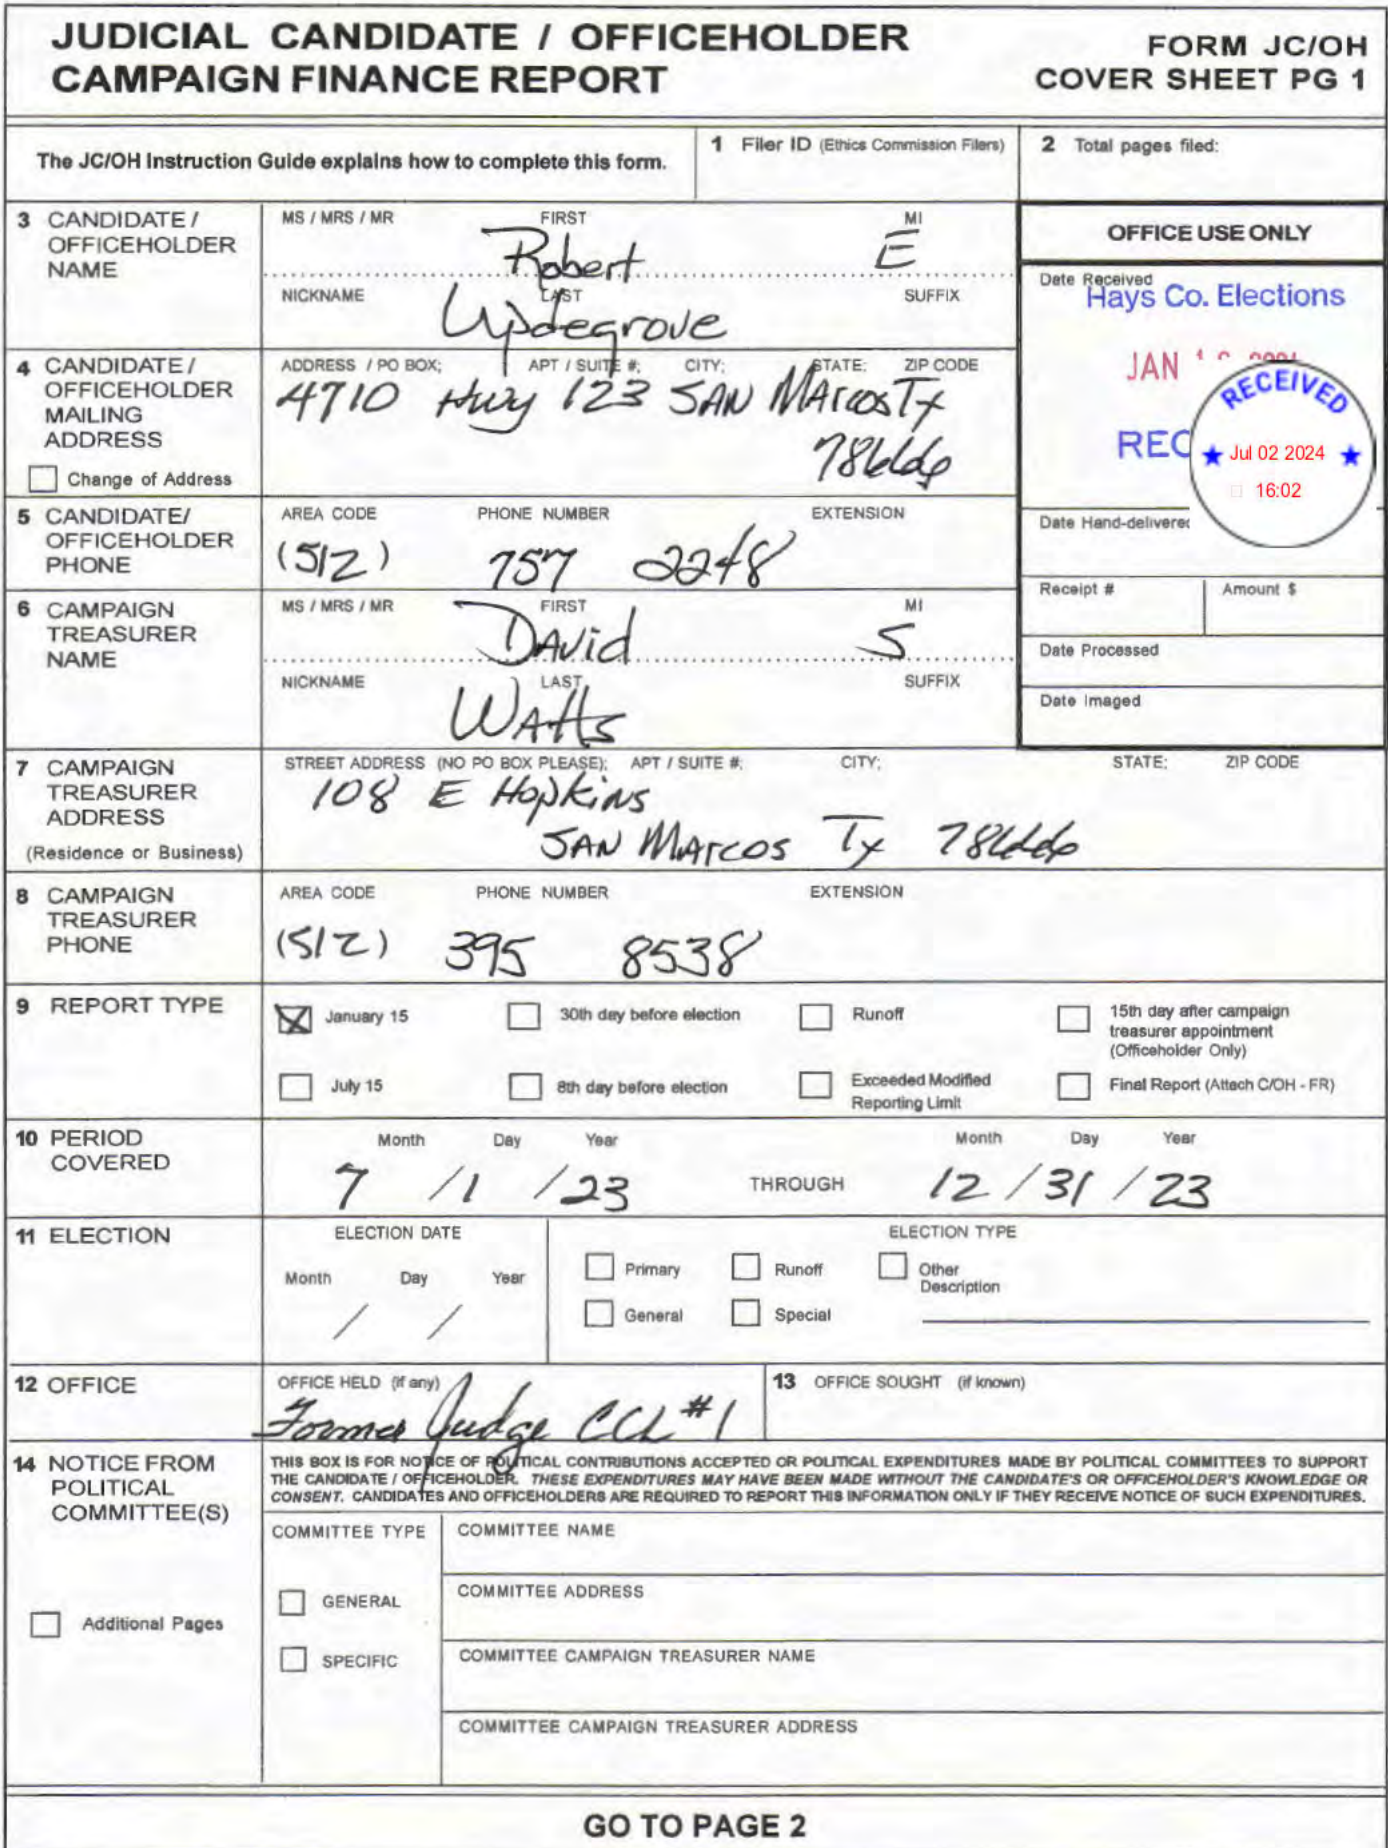 JUDICIAL CANDIDATE / OFFICEHOLDER
CAMPAIGN FINANCE REPORT
FORM JC/OH
COVER SHEET PG 1
The JC/OH Instruction Guide explains how to complete this form.
1 Filer ID (Ethics Commission Filers)
2 Total pages filed:
3 CANDIDATE / OFFICEHOLDER NAME
MS / MRS / MR FIRST MI
Robert E
NICKNAME LAST SUFFIX
Updegrove
OFFICE USE ONLY
Date Received
Hays Co. Elections
JAN
REC
RECEIVED
Jul 02 2024
16:02
Date Hand-delivered
Receipt # Amount $
Date Processed
Date Imaged
4 CANDIDATE / OFFICEHOLDER MAILING ADDRESS
Change of Address
ADDRESS / PO BOX; APT / SUITE #; CITY; STATE; ZIP CODE
4710 Hwy 123 SAN MARCOS Tx
78666
5 CANDIDATE/ OFFICEHOLDER PHONE
AREA CODE PHONE NUMBER EXTENSION
(512) 757 2248
6 CAMPAIGN TREASURER NAME
MS / MRS / MR FIRST MI
DAvid S
NICKNAME LAST SUFFIX
WAtts
7 CAMPAIGN TREASURER ADDRESS
(Residence or Business)
STREET ADDRESS (NO PO BOX PLEASE); APT / SUITE #; CITY; STATE; ZIP CODE
108 E Hopkins
SAN MArcos Tx 78666
8 CAMPAIGN TREASURER PHONE
AREA CODE PHONE NUMBER EXTENSION
(512) 395 8538
9 REPORT TYPE
January 15
30th day before election
Runoff
15th day after campaign treasurer appointment (Officeholder Only)
July 15
8th day before election
Exceeded Modified Reporting Limit
Final Report (Attach C/OH - FR)
10 PERIOD COVERED
Month Day Year
7 / 1 / 23
THROUGH
Month Day Year
12 / 31 / 23
11 ELECTION
ELECTION DATE
Month Day Year
/ /
ELECTION TYPE
Primary
Runoff
Other Description
General
Special
12 OFFICE
OFFICE HELD (if any)
Former Judge CCL #1
13 OFFICE SOUGHT (if known)
14 NOTICE FROM POLITICAL COMMITTEE(S)
THIS BOX IS FOR NOTICE OF POLITICAL CONTRIBUTIONS ACCEPTED OR POLITICAL EXPENDITURES MADE BY POLITICAL COMMITTEES TO SUPPORT
THE CANDIDATE / OFFICEHOLDER. THESE EXPENDITURES MAY HAVE BEEN MADE WITHOUT THE CANDIDATE'S OR OFFICEHOLDER'S KNOWLEDGE OR
CONSENT. CANDIDATES AND OFFICEHOLDERS ARE REQUIRED TO REPORT THIS INFORMATION ONLY IF THEY RECEIVE NOTICE OF SUCH EXPENDITURES.
Additional Pages
COMMITTEE TYPE
GENERAL
SPECIFIC
COMMITTEE NAME
COMMITTEE ADDRESS
COMMITTEE CAMPAIGN TREASURER NAME
COMMITTEE CAMPAIGN TREASURER ADDRESS
GO TO PAGE 2